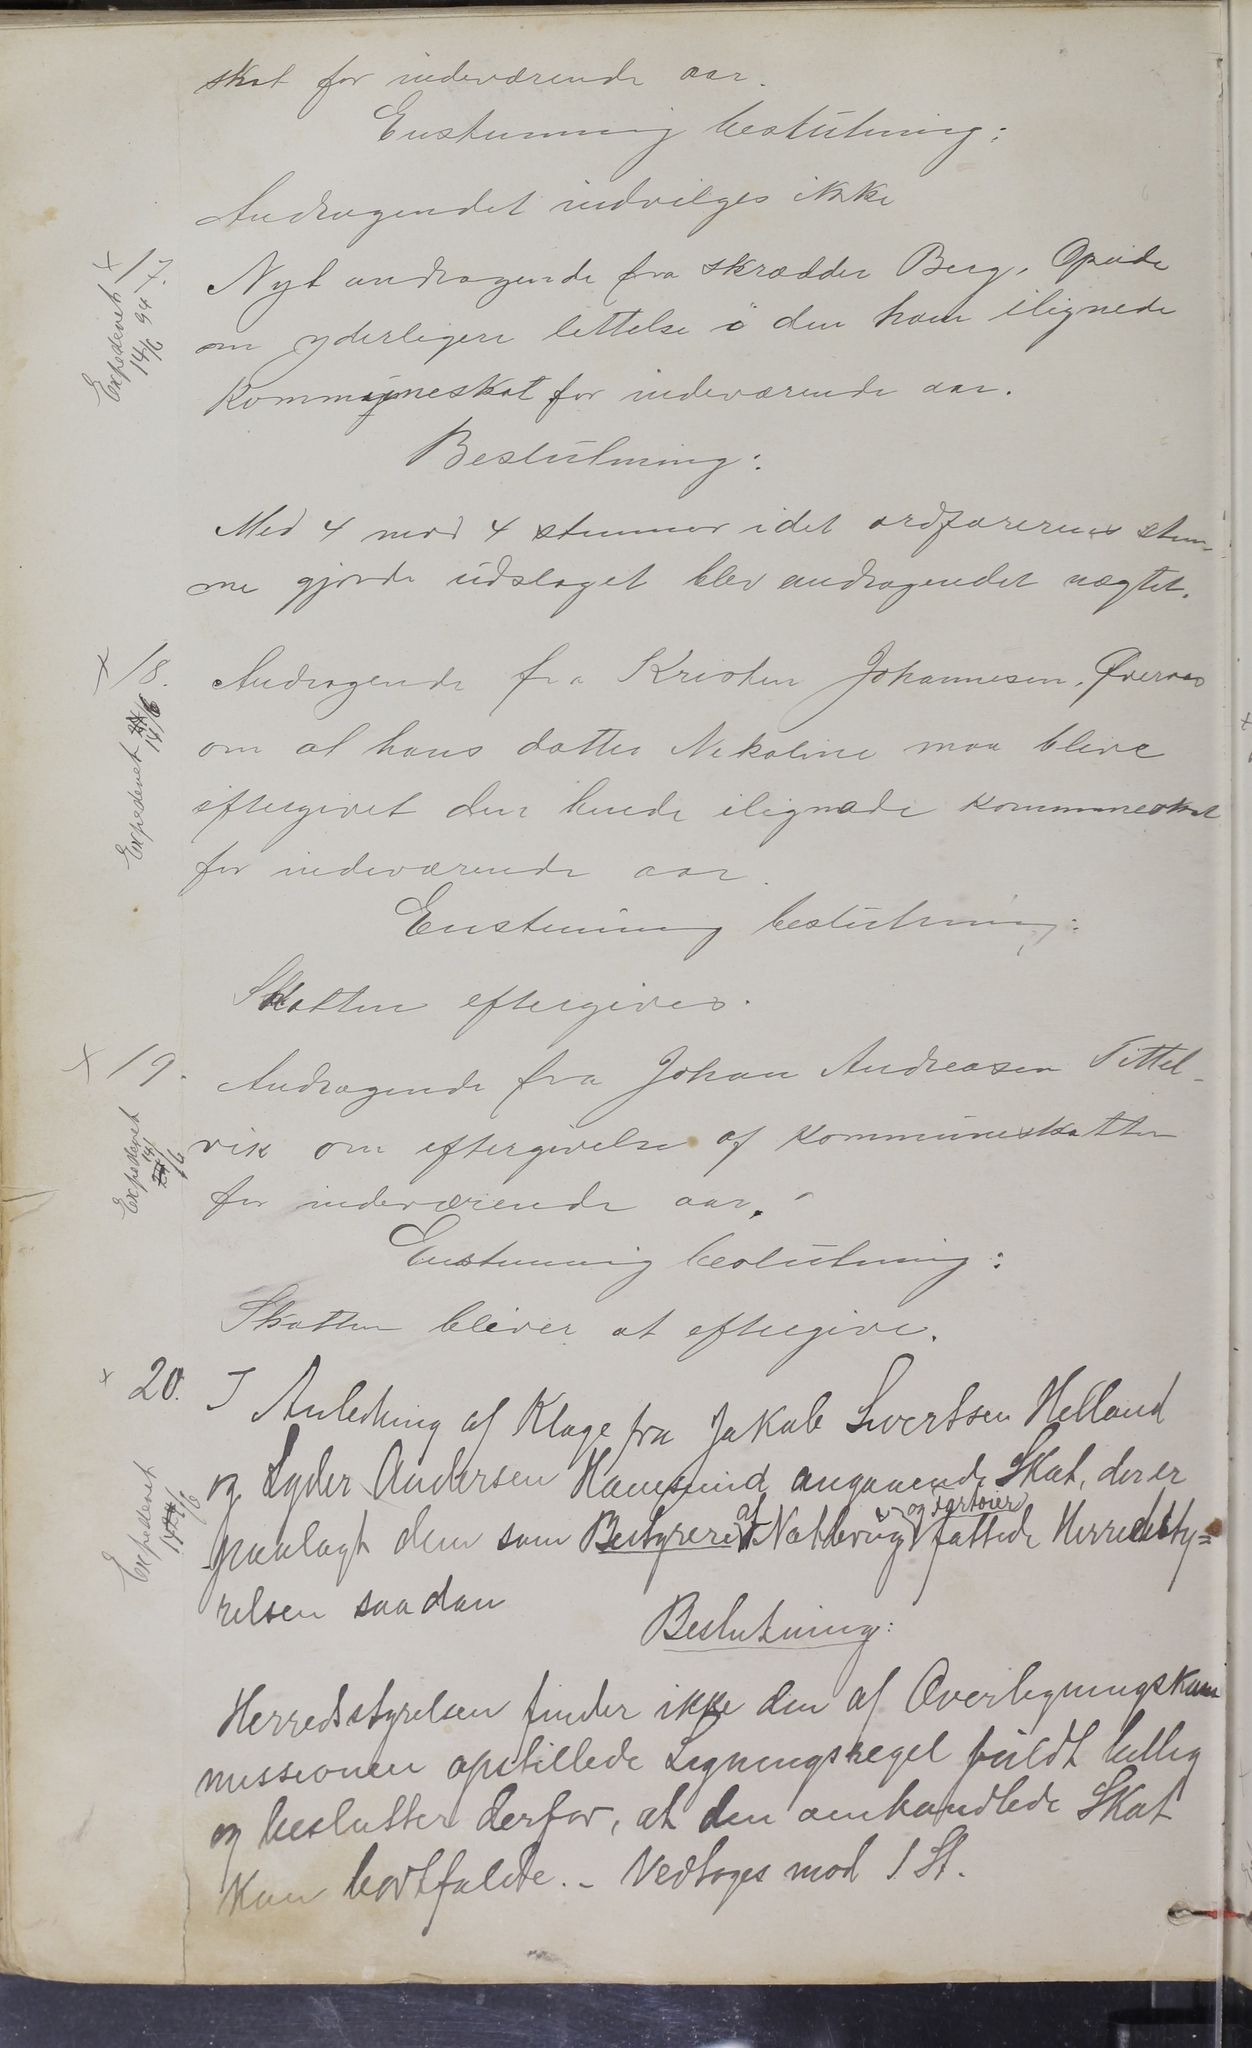 skat for indeværende aar.
Enstemmig beslutning:
Andragendet indvilges ikke
× 17. Nyt andragende fra skrædder Berg, Opeide
Expederet 14/6 94
om yderligere lettelse i den ham ilignede
kommuneskat for indeværende aar.
Beslutning:
Med 4 mod 4 stemmer idet ordførerens stem-
me gjorde udslaget blev andragendet nægtet.
× 18. Andragende fra Kristen Johannesen,
Expederet 14/6
om at hans datter Nikoline maa blive
eftergivet den hende ilignede kommuneskat
for indeværende aar.
Enstemmig beslutning:
Skatten eftergives.
× 19. Andragende fra Johan Andreasen Tittel-
Expederet 14/6
vik om eftergivelse af kommuneskatten
for indeværende aar.
Enstemmig beslutning:
Skatten bliver at eftergive.
× 20. I Anledning af Klage fra Jakob Sivertsen Helland
og Lyder Andersen Hamsund angaaende Skat, der er
Expederet 14/6
paalagt dem som Bestyrere af Notbrug og fartøier fattede Herredsty=
relsen saadan
Beslutning:
Herredsstyrelsen finder ikke den af Overligningskom
missionen opstillede Ligningsregel fuldt billig
og beslutter derfor, at den omhandlede Skat
kan bortfalde. - Vedtoges mod 1 St.